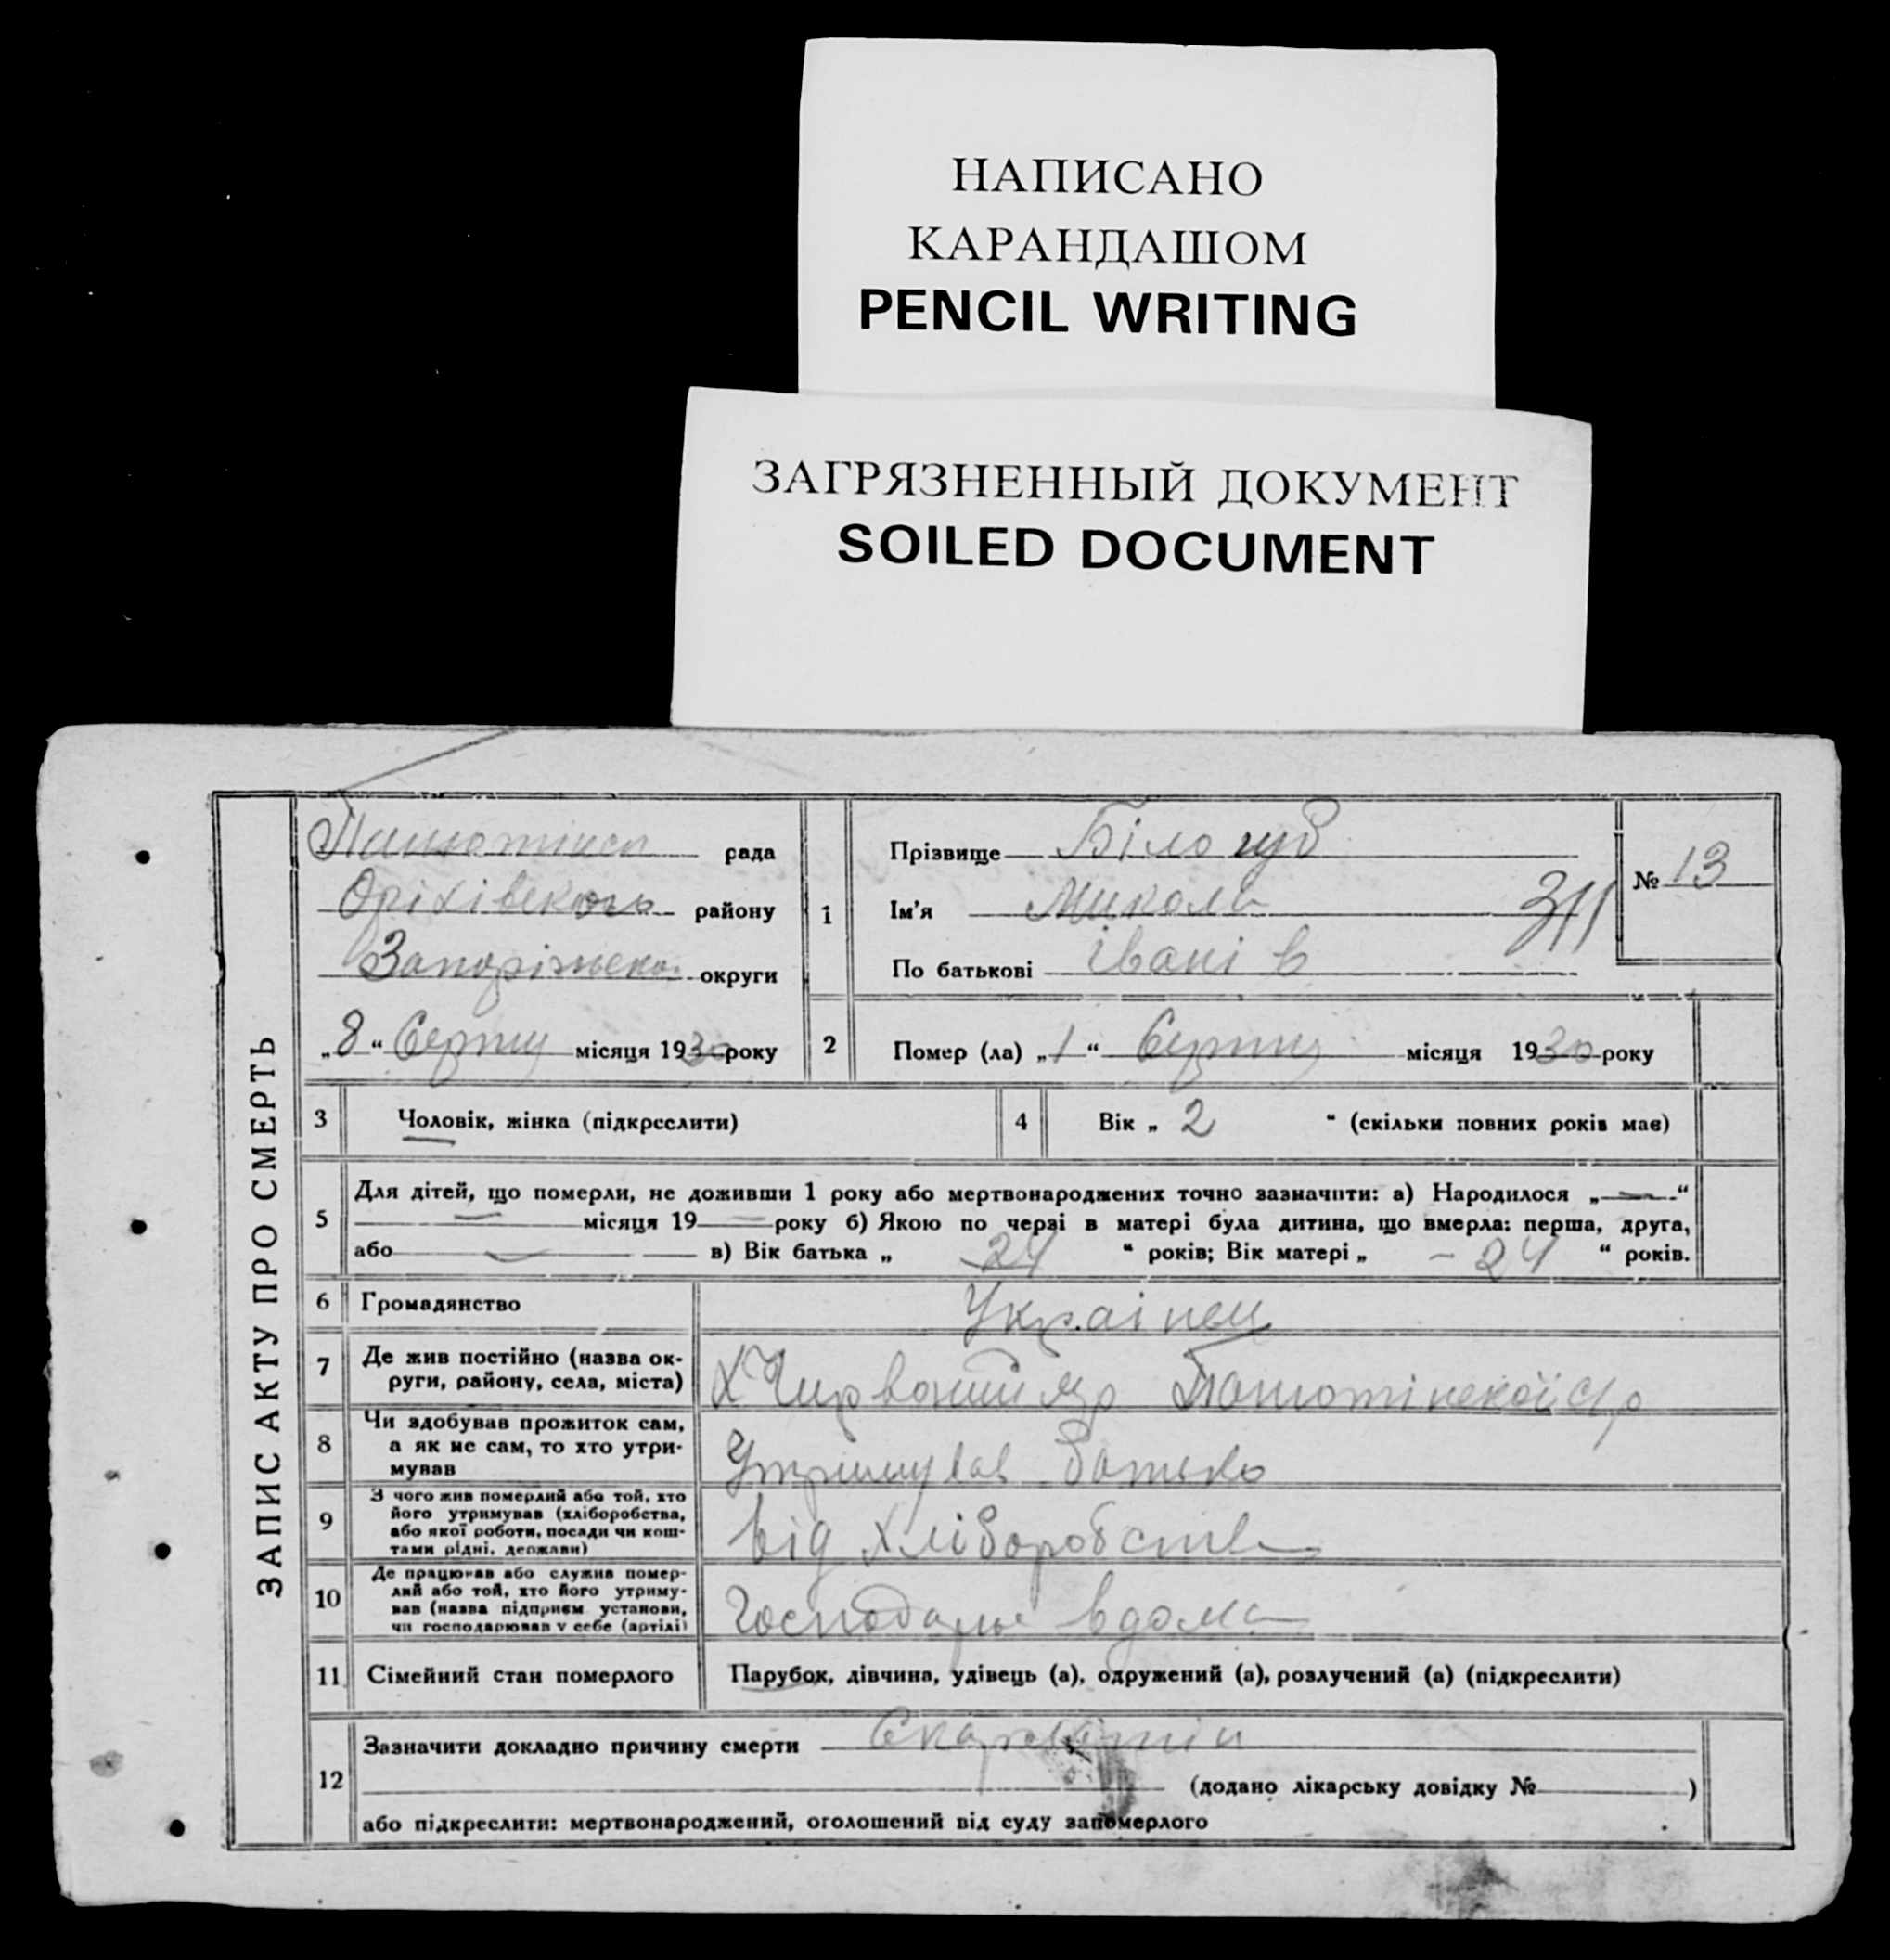 НАПИСАНО
КАРАНДАШОМ
PENCIL WRITING
ЗАГРЯЗНЕННЫЙ ДОКУМЕНТ
SOILED DOCUMENT
ЗАПИС АКТУ ПРО СМЕРТЬ
рада
Оріхівского району
Запоріжско округи
„8“ Серпня місяця 1930 року
1
Прізвище Білогуб
Ім'я Микола
По батькові Іванів
№ 13
2 Помер (ла) „1“ Серпня місяця 1930 року
3 Чоловік, жінка (підкреслити)
4 Вік „ 2 “ (скільки повних років мав)
5 Для дітей, що померли, не доживши 1 року або мертвонароджених точно зазначити: а) Народилося „—“
— місяця 19— року б) Якою по черзі в матері була дитина, що вмерла: перша, друга,
або — в) Вік батька „ 24 “ років; Вік матері „ - 24 “ років.
6 Громадянство Українец
7 Де жив постійно (назва ок-
руги, району, села, міста)
Х Чирвоний Яр с/р
8 Чи здобував прожиток сам,
а як не сам, то хто утри-
мував
Утримував батько
9 З чого жив померлий або той, хто
його утримував (хліборобства,
або якої роботи, посади чи кош-
тами рідні, держави)
від хліборобства
10 Де працював або служив помер-
лий або той, хто його утриму-
вав (назва підприєм установи,
чи господарював у себе (артілі)
вдома
11 Сімейний стан померлого Парубок, дівчина, удівець (а), одружений (а), розлучений (а) (підкреслити)
12 Зазначити докладно причину смерти
(додано лікарську довідку № )
або підкреслити: мертвонароджений, оголошений від суду запомерлого